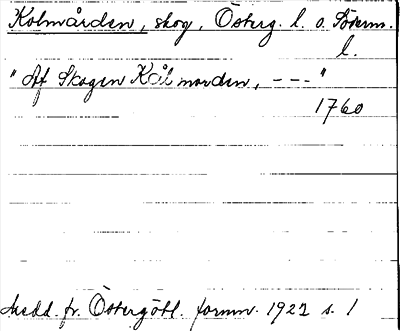 Kolmården, skog, Österg. l. o. Söderm.
l.
"Af Skogen Kålmorden, - - - "
1760
Medd. fr. Östergötl. fornm. 1922 s. 1